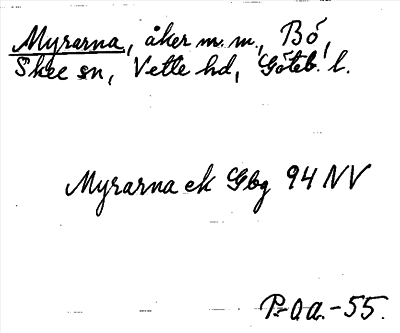 Myrarna, åker m.m., Bö,
Skee sn, Vette hd, Göteb. l.
Myrarna ek Gbg 94 NV
P-Oa.-55.